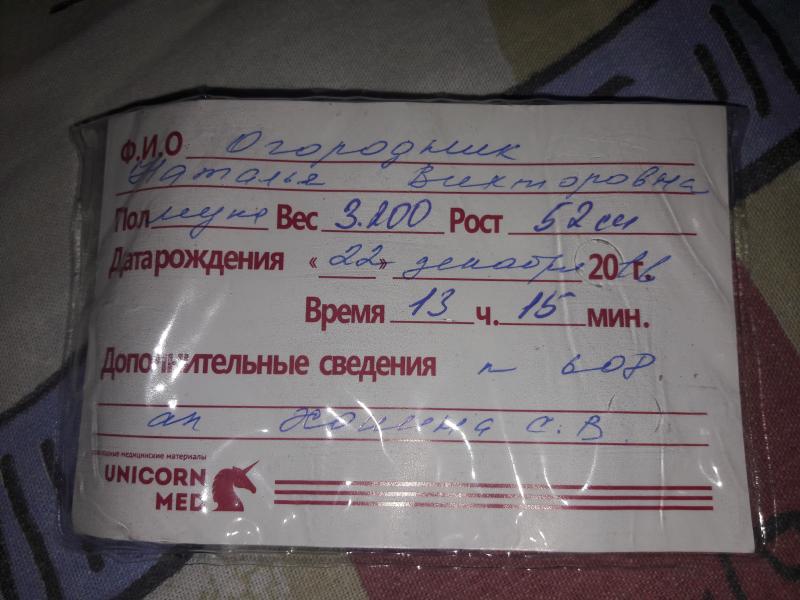 Ф.И.О Огородник
Наталья Викторовна
Пол муж Вес 3.200 Рост 52 см
Дата рождения «22» декабря 20 г.
Время 13 ч. 15 мин.
Дополнительные сведения
С. В.
медицинские материалы
UNICORN
MED